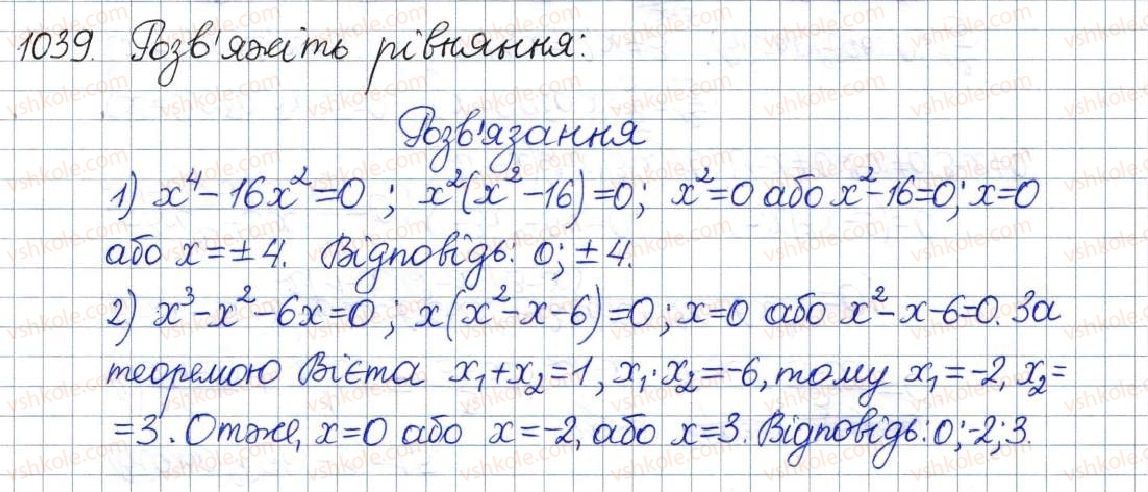 1039. Розв'яжіть рівняння:
Розв'язання
1) x⁴-16x²=0; x²(x²-16)=0; x²=0 або x²-16=0; x=0
або x=±4. Відповідь: 0; ±4.
2) x³-x²-6x=0; x(x²-x-6)=0; x=0 або x²-x-6=0. За
теоремою Вієта x₁+x₂=1, x₁·x₂=-6, тому x₁=-2, x₂=
=3. Отже, x=0 або x=-2, або x=3. Відповідь: 0; -2; 3.